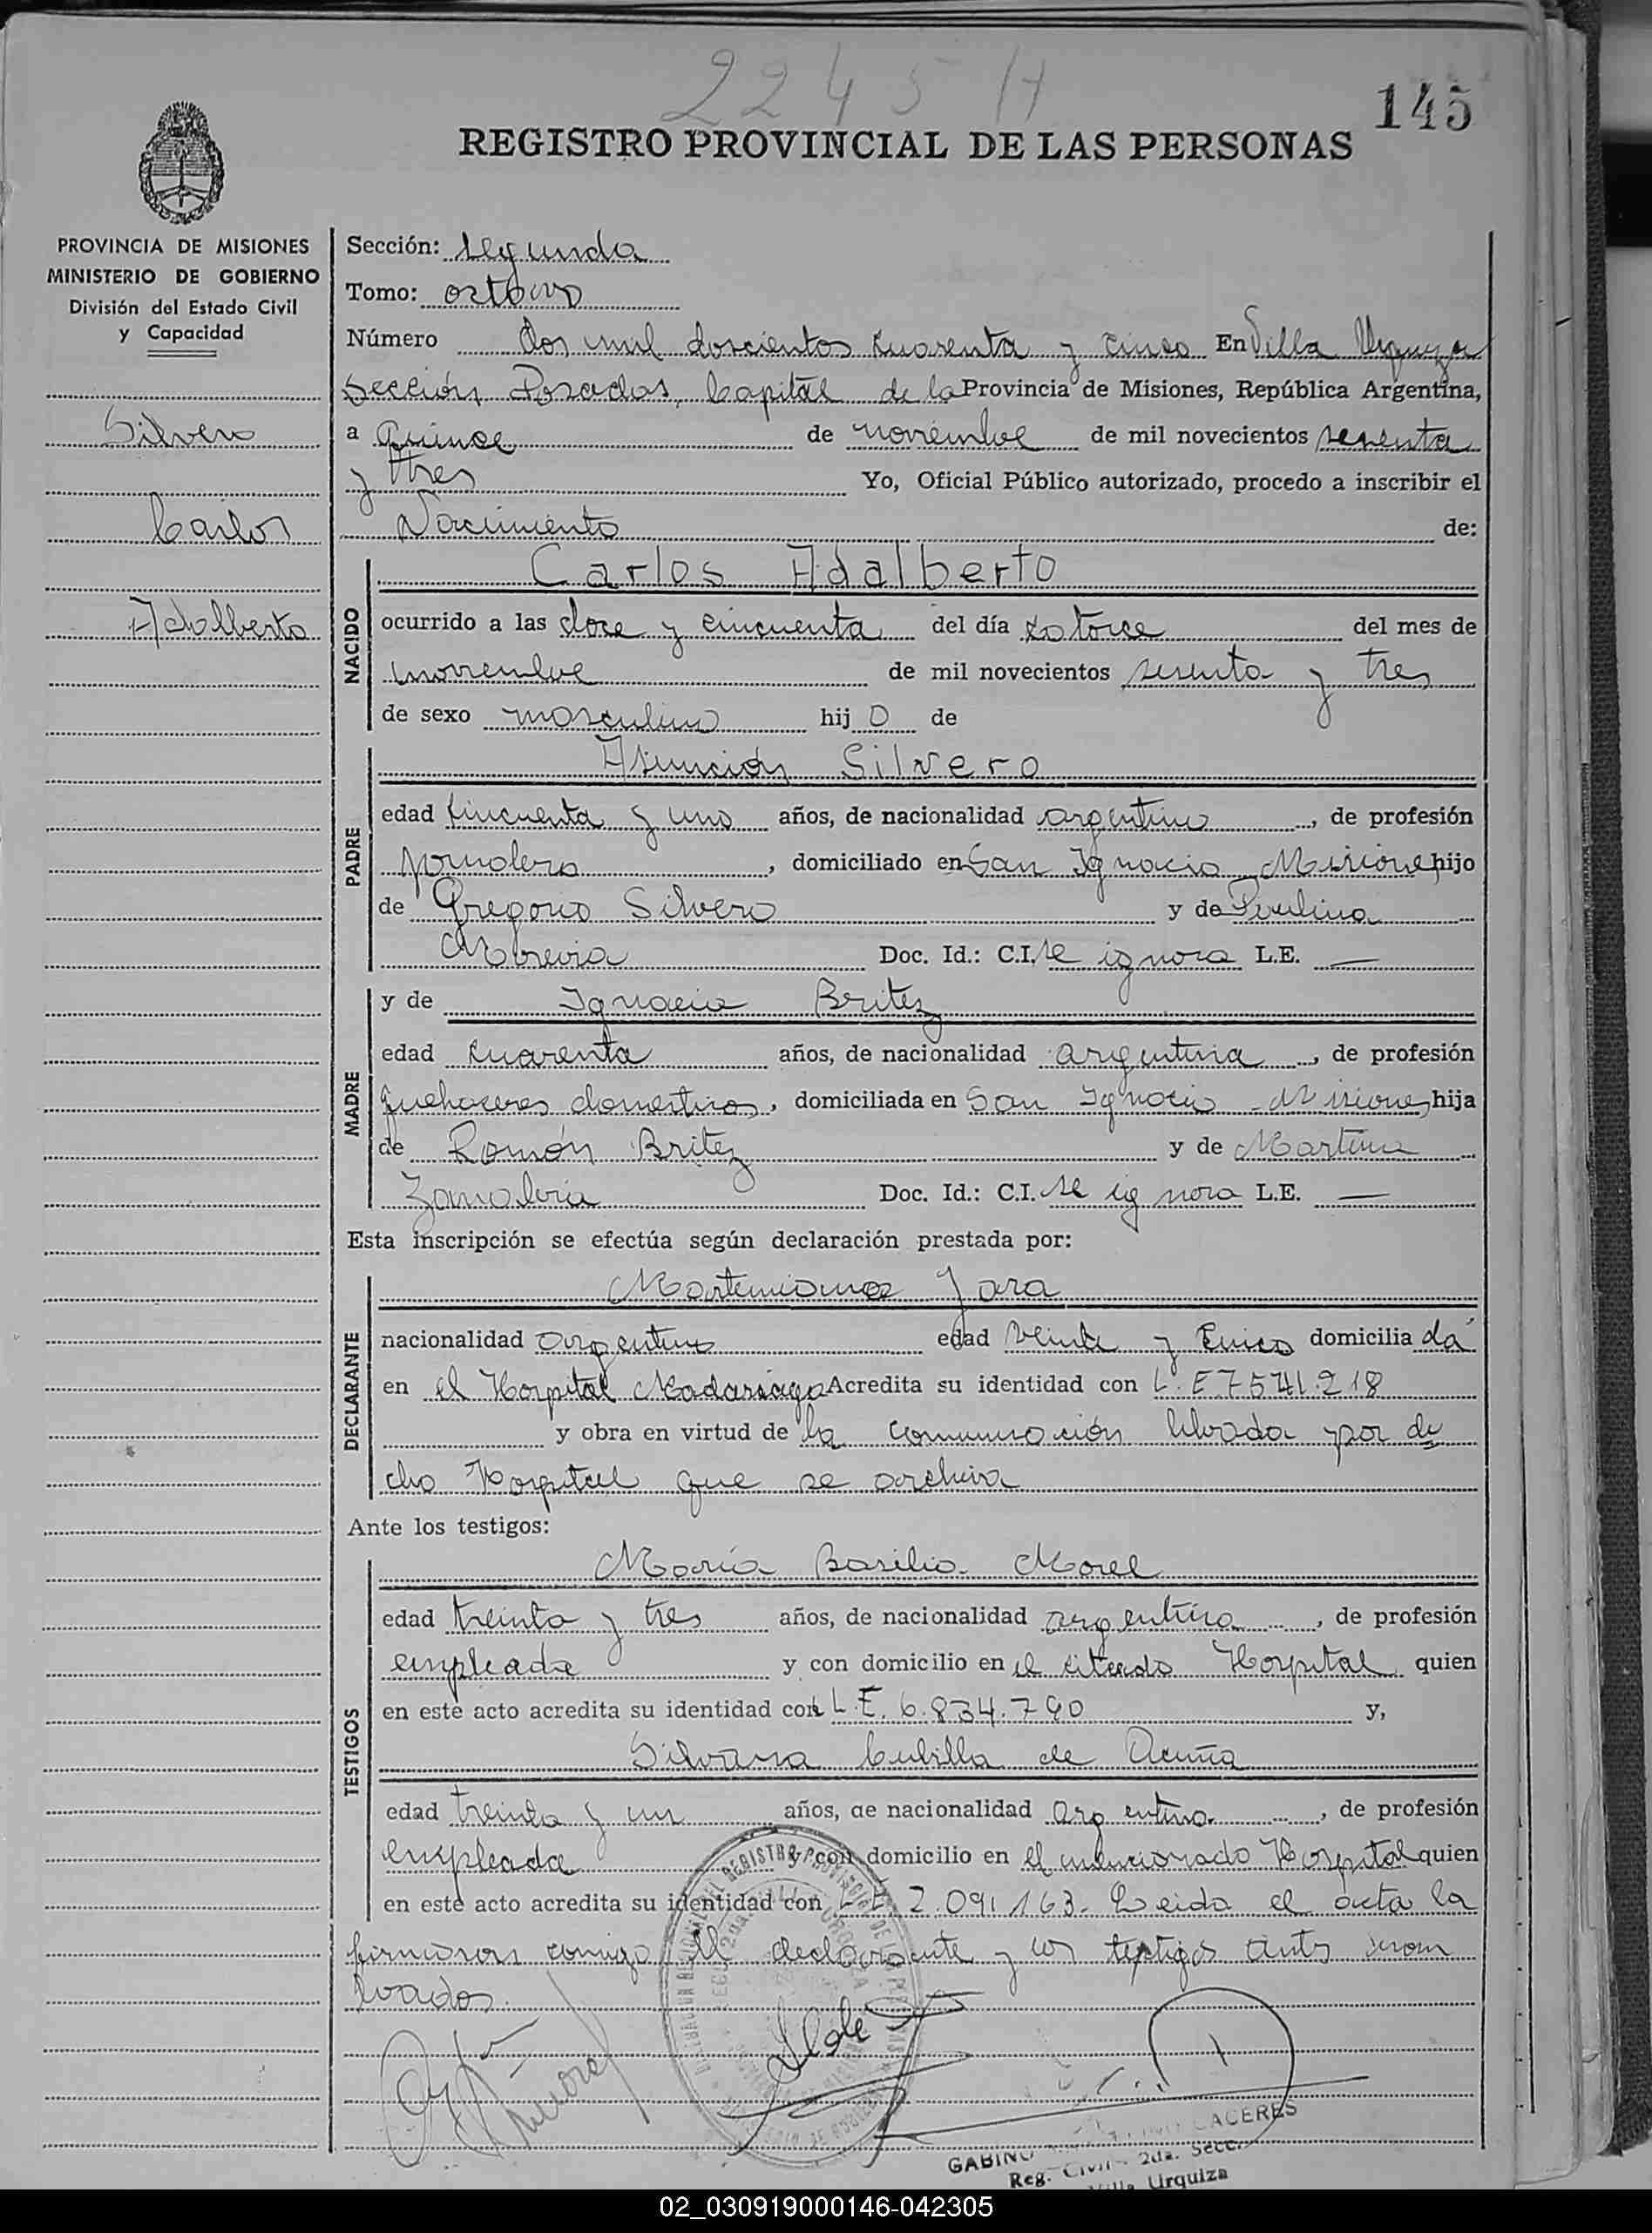 2245 H
145
REGISTRO PROVINCIAL DE LAS PERSONAS
PROVINCIA DE MISIONES
MINISTERIO DE GOBIERNO
División del Estado Civil
y Capacidad
Silvero
Carlos
Adalberto
Sección: segunda
Tomo: octavo
Número dos mil doscientos cuarenta y cinco En Villa Urquiza
Sección Posadas, Capital de la Provincia de Misiones, República Argentina,
a quince de noviembre de mil novecientos sesenta
y tres Yo, Oficial Público autorizado, procedo a inscribir el
Nacimiento de:
NACIDO
Carlos Adalberto
ocurrido a las doce y cincuenta del día catorce del mes de
noviembre de mil novecientos sesenta y tres
de sexo masculino hijo de
PADRE
Asunción Silvero
edad cincuenta y uno años, de nacionalidad argentino, de profesión
jornalero, domiciliado en San Ignacio Misiones, hijo
de Gregorio Silvero y de Paulina
Doc. Id.: C.I. se ignora L.E. —
MADRE
y de Ignacia Britez
edad cuarenta años, de nacionalidad argentina, de profesión
quehaceres domesticos, domiciliada en San Ignacio - Misiones, hija
de Román Britez y de Martina
Doc. Id.: C.I. se ignora L.E. —
Esta inscripción se efectúa según declaración prestada por:
DECLARANTE
Jara
nacionalidad argentino edad veinte y cinco domicilia da
en el Hospital Madariaga Acredita su identidad con L.E 7541.218
y obra en virtud de la comunicación librada por di
cho Hospital que se archiva
Ante los testigos:
TESTIGOS
María Basilia Morel
edad treinta y tres años, de nacionalidad argentina, de profesión
empleada y con domicilio en el citado Hospital quien
en este acto acredita su identidad con L.E. 6.834.790 y,
Silvana Cubilla de Acuña
edad treinta y un años, de nacionalidad argentina, de profesión
empleada y con domicilio en el mencionado Hospital quien
en este acto acredita su identidad con L.E 2.091.163. Leida el acta la
firmaron conmigo el declarante y los testigos antes nom
brados.
GABINO CACERES
Reg. Civil - 2da. Secc.
Villa Urquiza
02_030919000146-042305